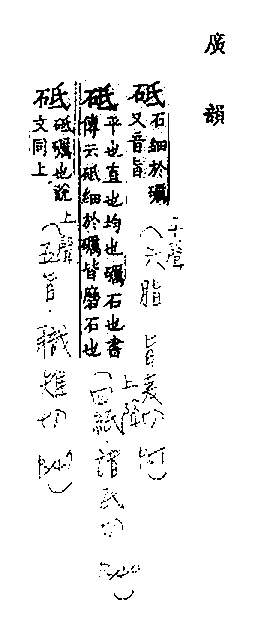 廣韻
砥 石細於礪
又音旨
平聲
(六脂 旨夷切
砥 平也直也均也礪石也書
傳云砥細於礪皆磨石也
上聲
(四紙·諸氏切
砥 砥礪也說
文同上
上聲
(五旨·職雉切